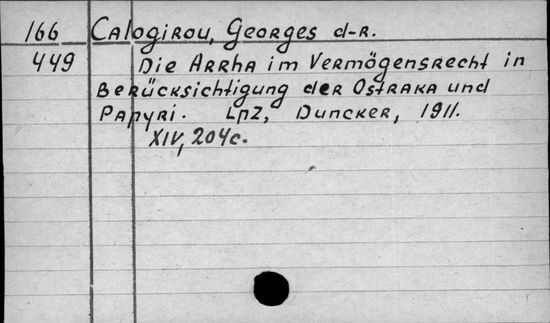 166 Calogirou, Georges d-r.
449 Die Arrha im Vermögensrecht in
Berücksichtigung der Ostraka und
Papyri. Lpz, Duncker, 1911.
XIV, 204c.